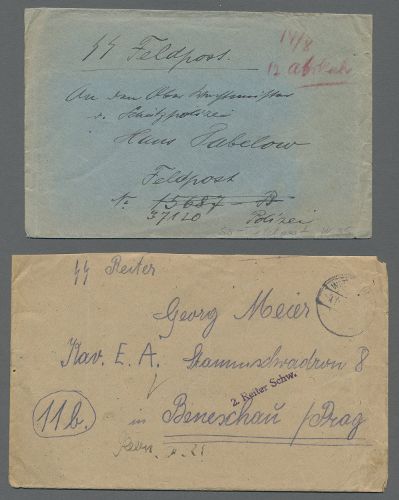 SS Feldpost.
14/8
12
An den Ober Wachtmeister
d. Schutzpolizei
Hans Pabelow
Feldpost
No 15687 - B
37120 Polizei
SS Reiter
Georg Meier
Kav. E. A. Stammschwadron 8
2. Reiter Schw.
11b. in Beneschau / Prag